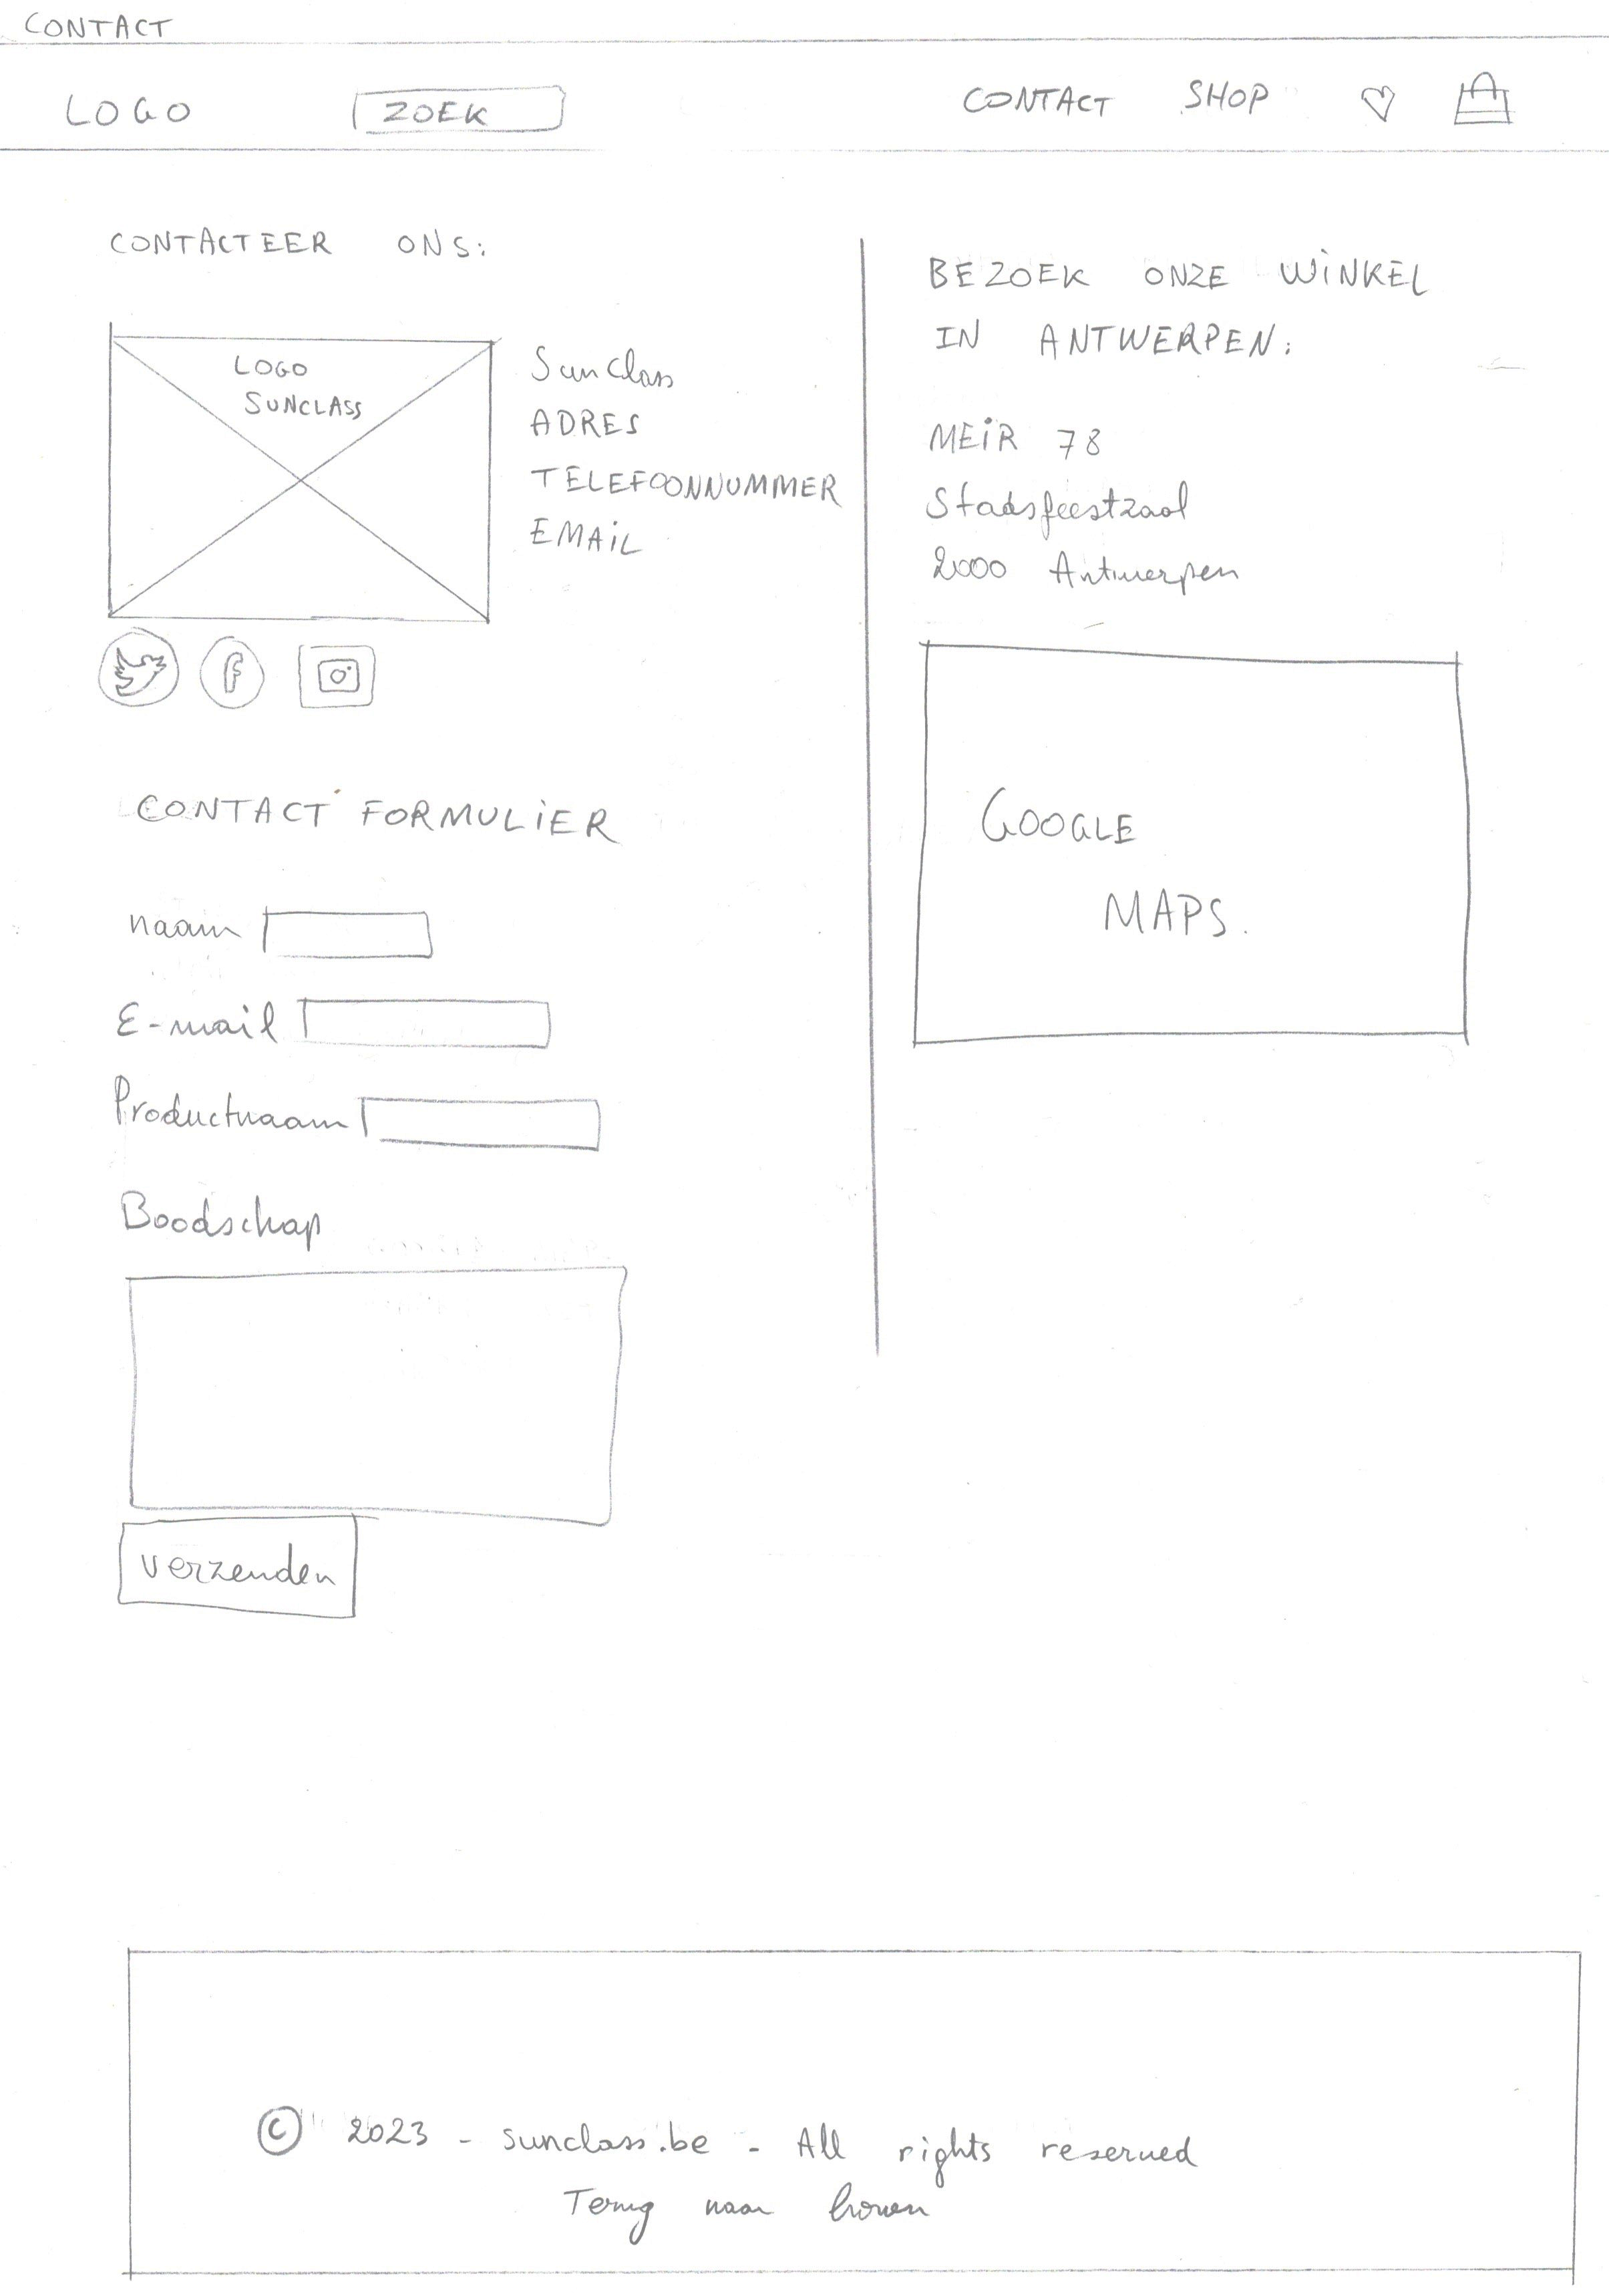 CONTACT
LOGO ZOEK CONTACT SHOP
CONTACTEER ONS:
LOGO
SUNCLASS
SunClass
ADRES
TELEFOONNUMMER
EMAIL
CONTACT FORMULIER
naam
E-mail
Productnaam
Boodschap
verzenden
BEZOEK ONZE WINKEL
IN ANTWERPEN:
MEIR 78
Stadsfeestzaal
2000 Antwerpen
GOOGLE
MAPS.
© 2023 - sunclass.be - All rights reserved
Terug naar boven